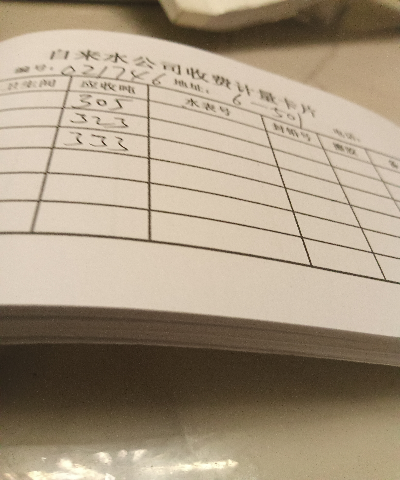 自来水公司收费计量卡片
编号: 021746 地址: 6-301 电话:
卫生间 应收吨 水表号 封铅号
305
323
333